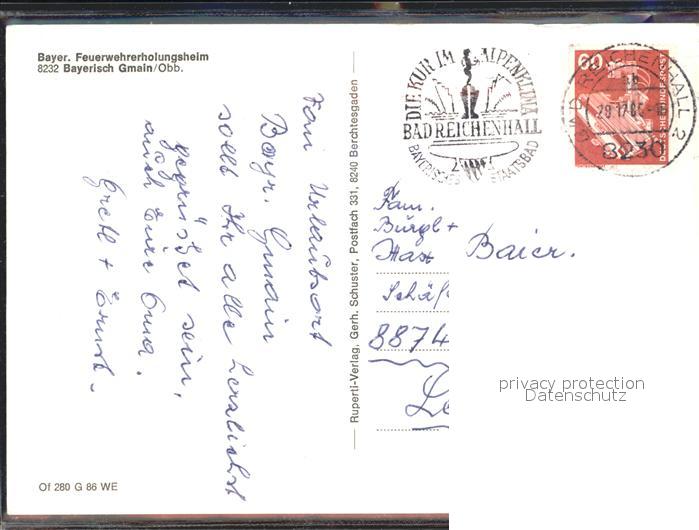 Bayer. Feuerwehrerholungsheim
8232 Bayerisch Gmain/Obb.
Vom Urlaubsort
Bayr. Gmain
sollt Ihr alle herzlichst
gegrüßt sein,
auch Eure Oma.
Gretl + Ernst.
Of 280 G 86 WE
Ruperti-Verlag, Gerh. Schuster, Postfach 331, 8240 Berchtesgaden
DIE KUR IM ALPENKLIMA
BAD REICHENHALL
BAYERISCHES STAATSBAD
60
DEUTSCHE BUNDESPOST
BAD REICHENHALL 2
8230
Fam.
Burgl +
Max Baier.
Schäf
8874
Le
privacy protection
Datenschutz